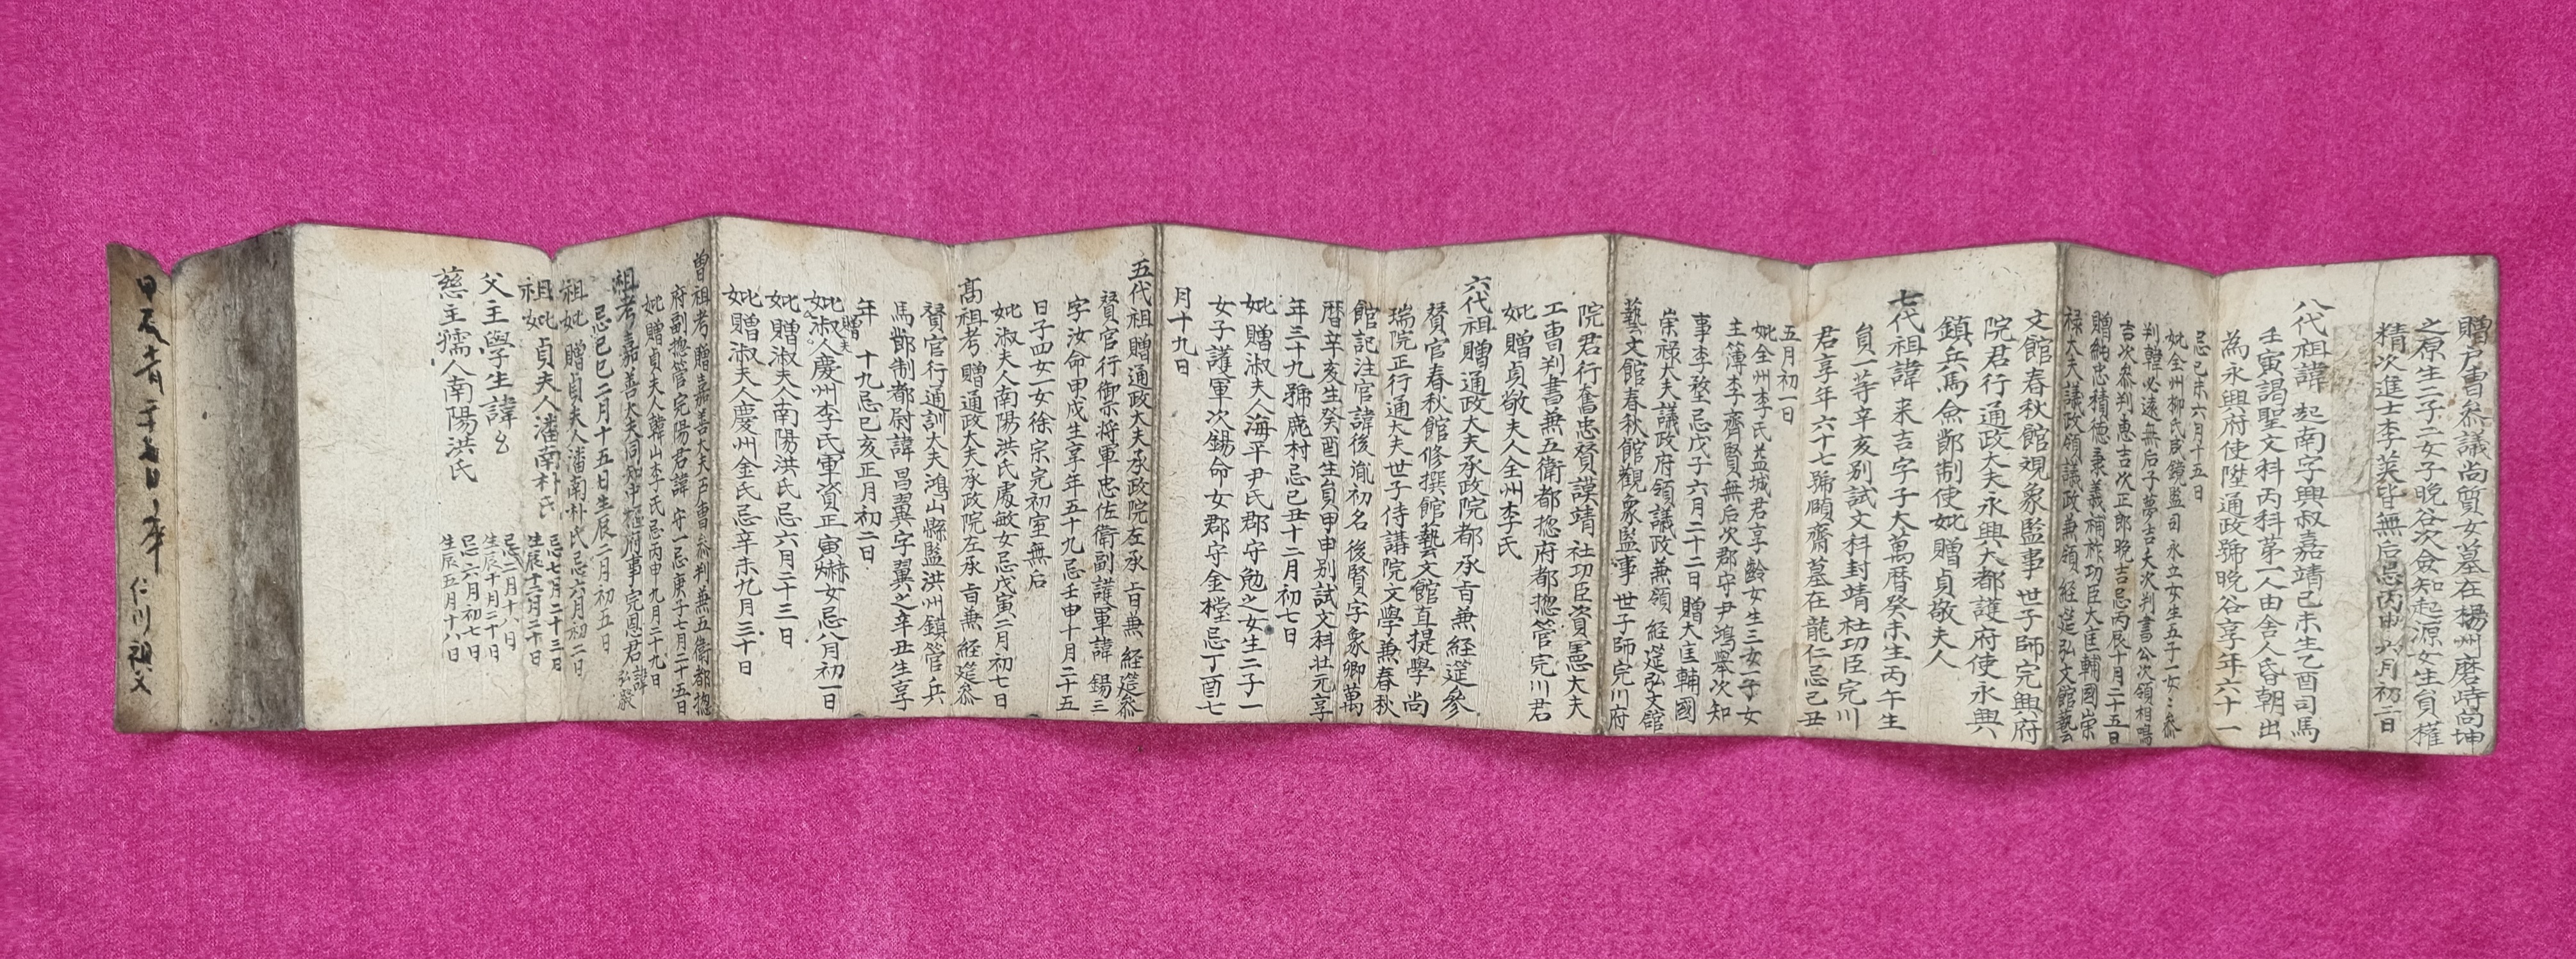 贈戶曹叅議尚質女墓在楊州磨峙尚坤
之原生二子二女子晩谷次僉知起源女生員權
精次進士李葵皆無后忌丙申六月初二日
八代祖諱起南字興叔嘉靖己未生乙酉司馬
壬寅謁聖文科丙科第一人由舍人昏朝出
為永興府使陞通政號晩谷享年六十一
忌己未六月十五日
妣全州柳氏咸鏡監司永立女生五子一女子叅
判韓必遠無后子夢吉大次判書公次領相鳴
吉次叅判惠吉次正郎晩吉忌丙辰十月二十五日
贈純忠積德秉義補祚功臣大匡輔國崇
祿大夫議政領議政兼領經筵弘文館藝
文館春秋館觀象監事世子師完興府
院君行通政大夫永興大都護府使永興
鎮兵馬僉節制使妣贈貞敬夫人
七代祖諱來吉字子大萬曆癸未生丙午生
員一等辛亥別試文科封靖社功臣完川
君享年六十七號頤齋墓在龍仁忌己丑
五月初一日
妣全州李氏益城君享齡女生三女一子女
主簿李齊賢無后次郡守尹鴻擧次知
事李墪忌戊子六月二十二日贈大匡輔國
崇祿大夫議政府領議政兼領經筵弘文館
藝文館春秋館觀象監事世子師完川府
院君行奮忠贊謨靖社功臣資憲大夫
工曹判書兼五衛都摠府都摠管完川君
妣贈貞敬夫人全州李氏
六代祖贈通政大夫承政院都承旨兼經筵參
贊官春秋館修撰館藝文館直提學尚
瑞院正行通大夫世子侍講院文學兼春秋
館記注官諱後胤初名後賢字象卿萬
曆辛亥生癸酉生員甲申別試文科壯元享
年三十九號鹿村忌己丑十二月初七日
妣贈淑夫人海平尹氏郡守勉之女生二子一
女子護軍次錫命女郡守金樘忌丁酉七
月十九日
五代祖贈通政大夫承政院左承旨兼經筵叅
贊官行御侮將軍忠佐衛副護軍諱錫三
字汝命甲戌生享年五十九忌壬申十月二十五
日子四女一女徐宗完初室無后
妣淑夫人南陽洪氏處敏女忌戊寅二月初七日
高祖考贈通政大夫承政院左承旨兼經筵叅
贊官行通訓大夫鴻山縣監洪州鎮管兵
馬節制都尉諱昌翼字翼之辛丑生享
年 十九忌己亥正月初二日
妣贈淑夫人慶州李氏軍資正寅爀女忌八月初一日
妣贈淑夫人南陽洪氏忌六月二十三日
妣贈淑夫人慶州金氏忌辛未九月三十日
曾祖考贈嘉善大夫戶曹叅判兼五衛都摠
府副摠管完陽君諱守一忌庚子七月二十五日
妣贈貞夫人韓山李氏忌丙申九月二十九日
祖考嘉善大夫同知中樞府事完恩君諱弘嚴
忌己巳二月十五日生辰二月初五日
祖妣贈貞夫人潘南朴氏忌六月初二日
祖妣貞夫人潘南朴氏忌七月二十三日
生辰十二月二十日
父主學生諱 忌二月十六日
生辰十月二十日
慈主孺人南陽洪氏忌六月初七日
生辰五月十八日
仁川祖父